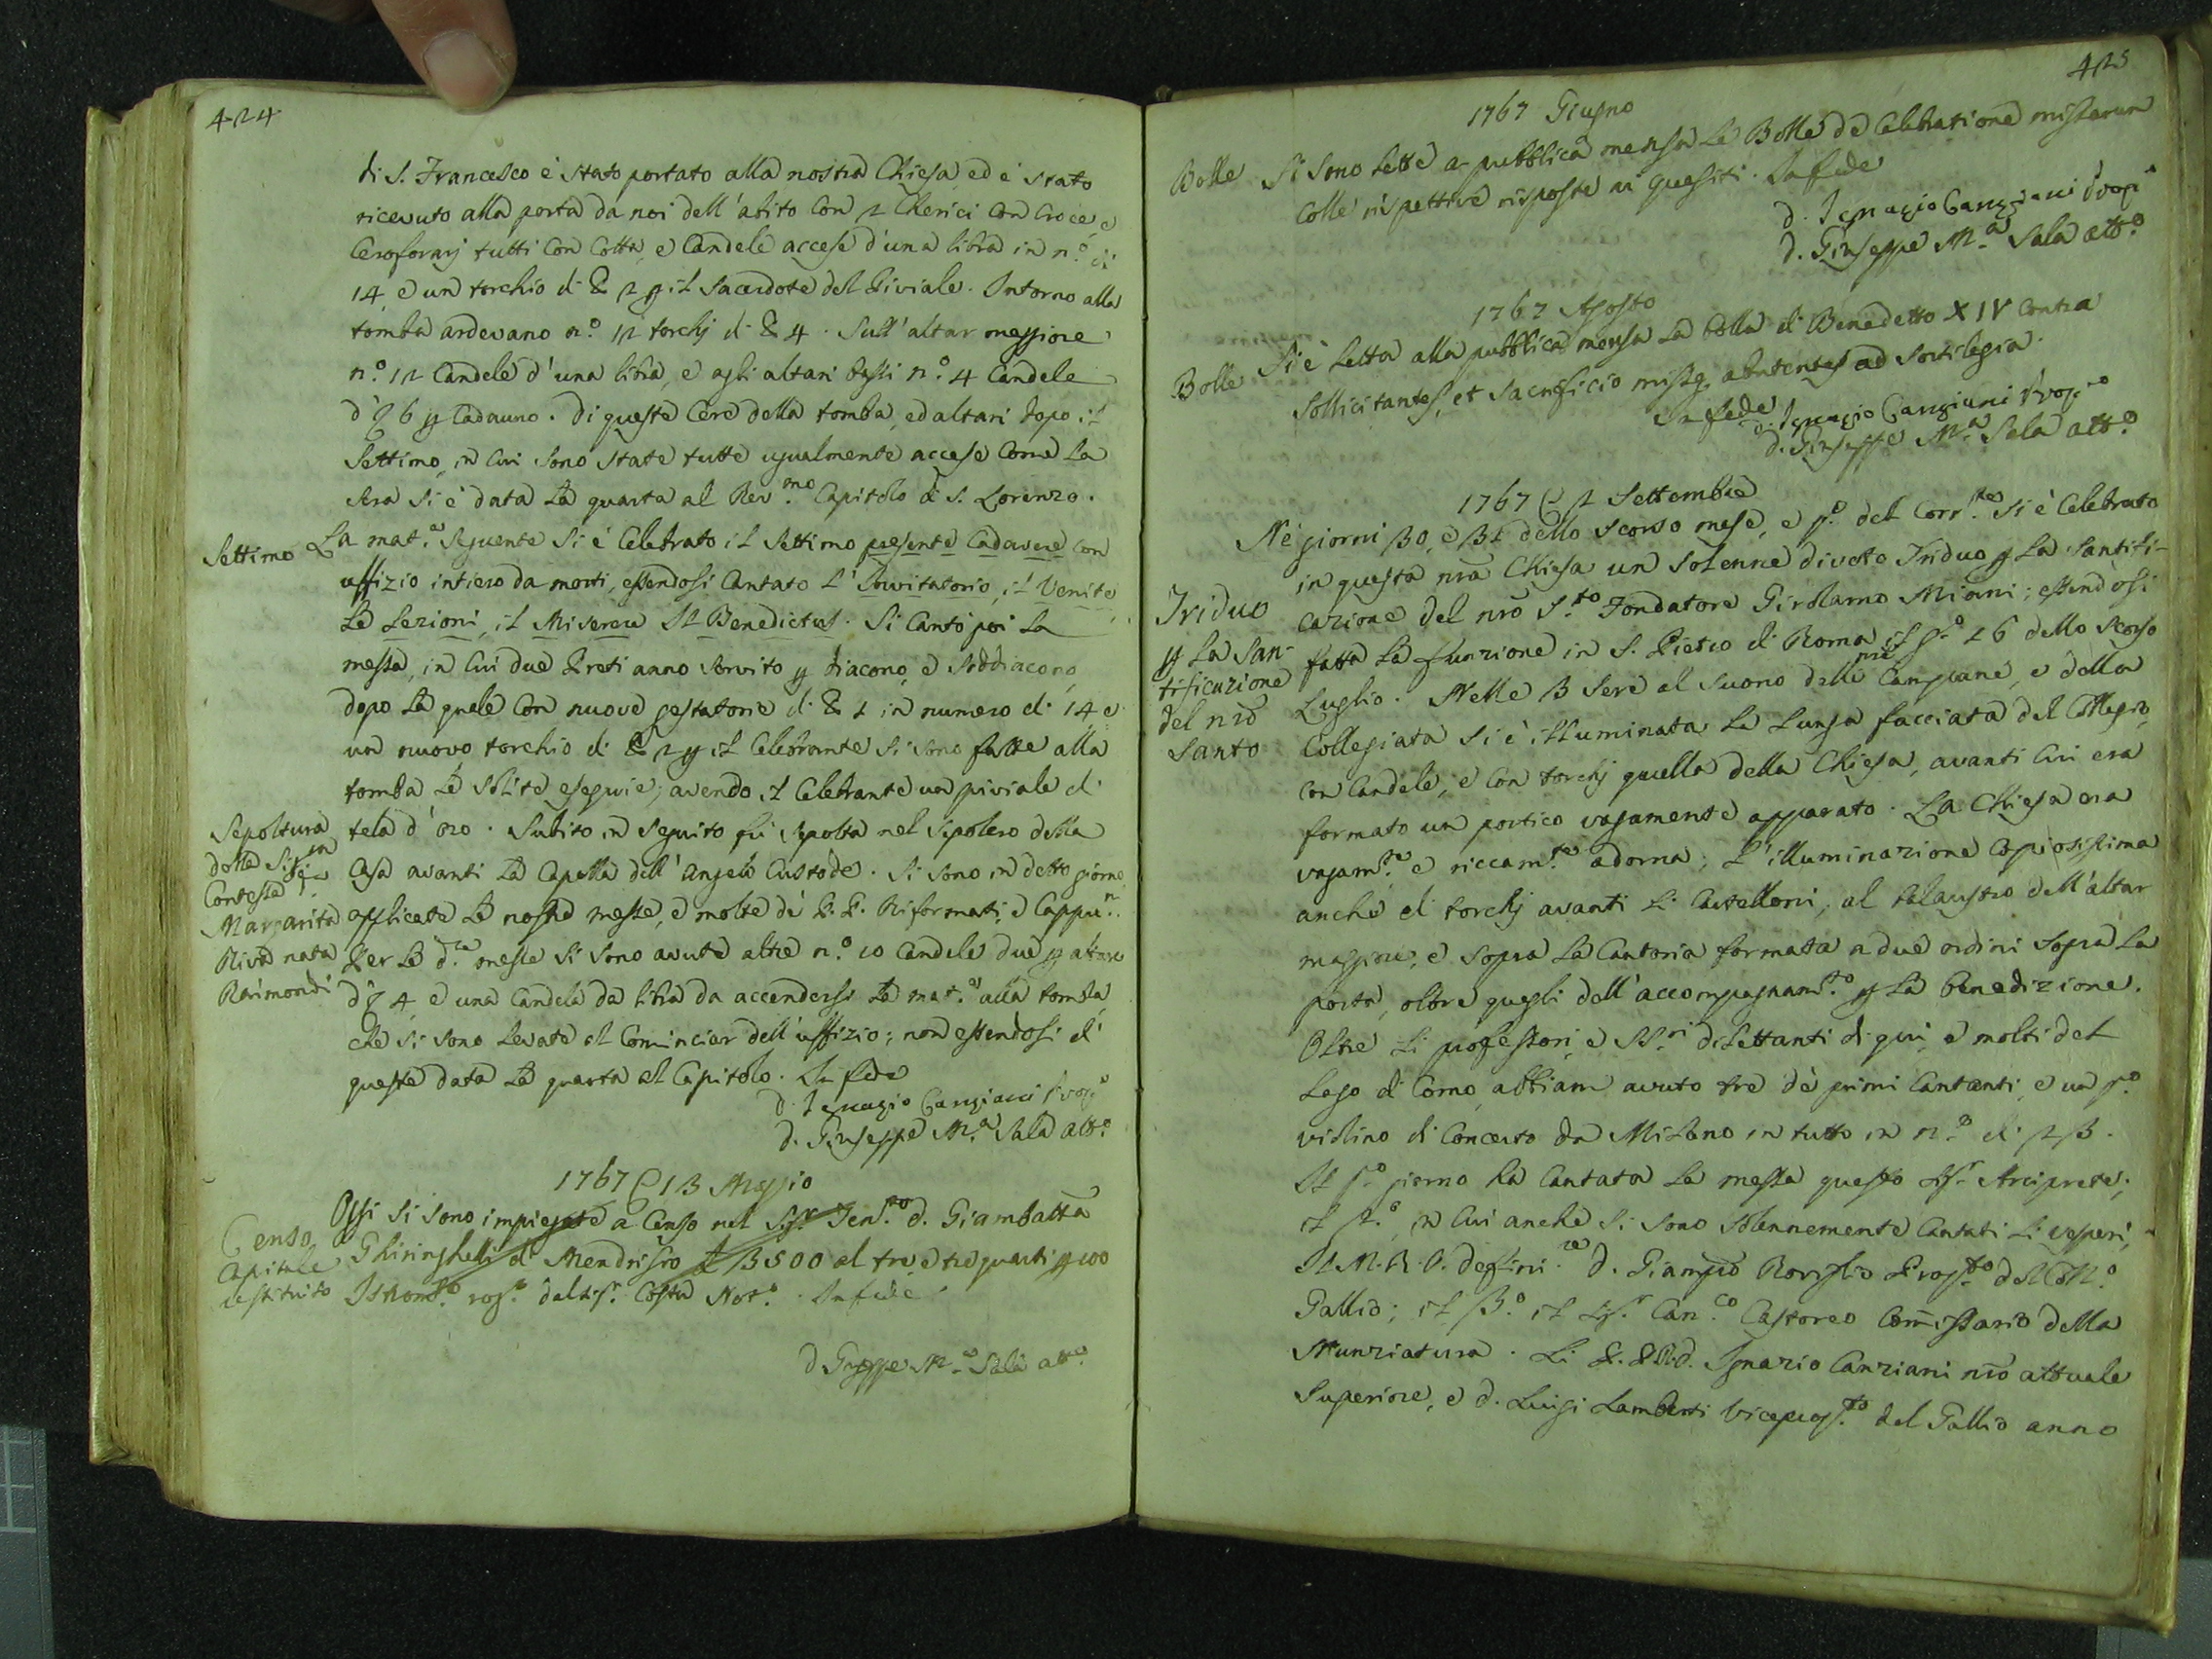 424
di S. Francesco è stato portato alla nostra Chiesa, ed è stato
ricevuto alla porta da noi dell'abito con 2 Chierici con Croce, e
Ceroforarj tutti con Cotta, e Candele accese d'una libra in n.º di
14 e un torchio di ℔ 2 p il Sacerdote del Piviale. Intorno alla
tomba ardevano n.º 12 torchj di ℔ 4. Sull'altar maggiore
n.º 12 Candele d'una libra, e agli altari bassi n.º 4 Candele
d'℥ 6 p Cadauno. Di queste Cere della tomba, ed altari dopo il
Settimo, in cui sono state tutte ugualmente accese come la
sera si è data la quarta al Rev.mo Capitolo di S. Lorenzo.
Settimo
La mat.a seguente si è Celebrato il Settimo presente Cadavere con
uffizio intiero da morti, essendosi Cantato l'Invitatorio, il Venite,
le Lezioni, il Miserere Il Benedictus. Si cantò poi la
messa, in cui due Preti anno servito p diacono, e Soddiacono,
dopo la quale con nuove gestatorie di ℔ 1 in numero di 14 e
un nuovo torchio di ℔ 2 p il Celebrante si sono fatte alla
tomba le solite esequie; avendo il Celebrante un piviale di
Sepoltura
della Sig.ra
Contessa
Margarita
Riva nata
Raimondi
tela d'oro. Subito in seguito fù sepolta nel Sepolcro della
Casa avanti la Capella dell'Angelo Custode. Si sono in detto giorno
applicate le nostre messe, e molte de' P.P. Riformati, e Cappu.n
Per le d.e messe si sono avute altre n.º 10 Candele due p altare
d'℥ 4, e una Candela da libra da accendersi la mat.a alla tomba,
che si sono levate al Cominciar dell'uffizio; non essendosi di
queste data la quarta al Capitolo. In fede
d. Ignazio Canziani Prop.º
d. Giuseppe M.a Sala att.º
1767 13 Maggio
Censo
Capitale
restituito
Oggi si sono impiegate a Censo nel Sig.r Ten.te d. Giambatta
Ghiringhelli di Mendrisio £ 3500 al tre e tre quarti p 100
Istrom.to rog.º dal Sig.r Costa Not.º. In fede
d Gippe M.a Sala att.º
425
1767 Giugno
Bolle
Si sono lette a pubblica mensa le Bolle de Celebratione missarum
colle rispettive risposte ai quesiti. In fede
d. Ignazio Canziani Prop.º
d. Giuseppe M.a Sala att.º
1767 Agosto
Bolle
Si è letta alla pubblica mensa la bolla di Benedetto XIV contra
sollicitantes, et Sacrificio missę abutentes ad sortilegia.
In fede d. Ignazio Canziani Prop.to
d. Giuseppe M.a Sala att.º
1767 2 Settembre
Triduo
p la San-
tificazione
del nrõ
Santo
Ne' giorni 30, e 31 dello scorso mese, e p.º del Corr.te si è Celebrato
in questa nrã Chiesa un solenne divoto Triduo p la Santifi-
cazione del nrõ S.to Fondatore Girolamo Miani; essendosi
fatta la funzione in S. Pietro di Roma il g.º 16 dello scorso
Luglio. Nelle 3 sere al suono delle nre Campane, e della
Collegiata si è illuminata la lunga facciata del Collegio,
con Candele, e con torchj quella della Chiesa, avanti cui era
formato un portico vagamente apparato. La Chiesa era
vagam.te e riccam.te adorna; l'illuminazione copiosissima
anche di torchj avanti li Cartelloni, al balaustro dell'altar
maggiore, e sopra la Cantoria formata a due ordini sopra la
porta, oltre quegli dell'accompagnam.to p la benedizione.
Oltre li professori, e SS.ri dilettanti di qui, e molti del
Lago di Como, abbiam avuto tre de' primi Cantanti, e un p.º
violino di Concerto da Milano in tutto in n.º di 23.
Il p.º giorno ha Cantata la messa questo Sig.r Arciprete;
il 2.º, in cui anche si sono solennemente Cantati li vesperi,
Il M.R.P. deffini.re d. Giampio Roviglio Prop.to del Coll.º
Gallio; il 3.º il Sig.r Can.co Castoreo Commissario della
Nunziatura. Li P.P. R.d. Ignazio Canziani nrõ attuale
Superiore, e d. Luigi Lamberti Viceprop.to del Gallio anno